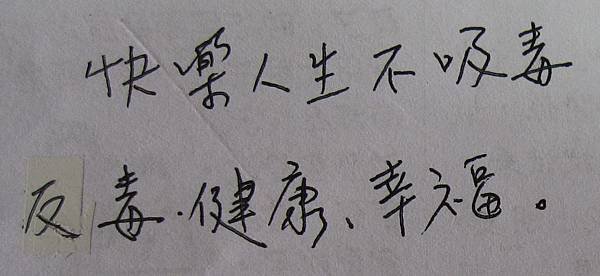 快樂人生不吸毒
反毒.健康、幸福。